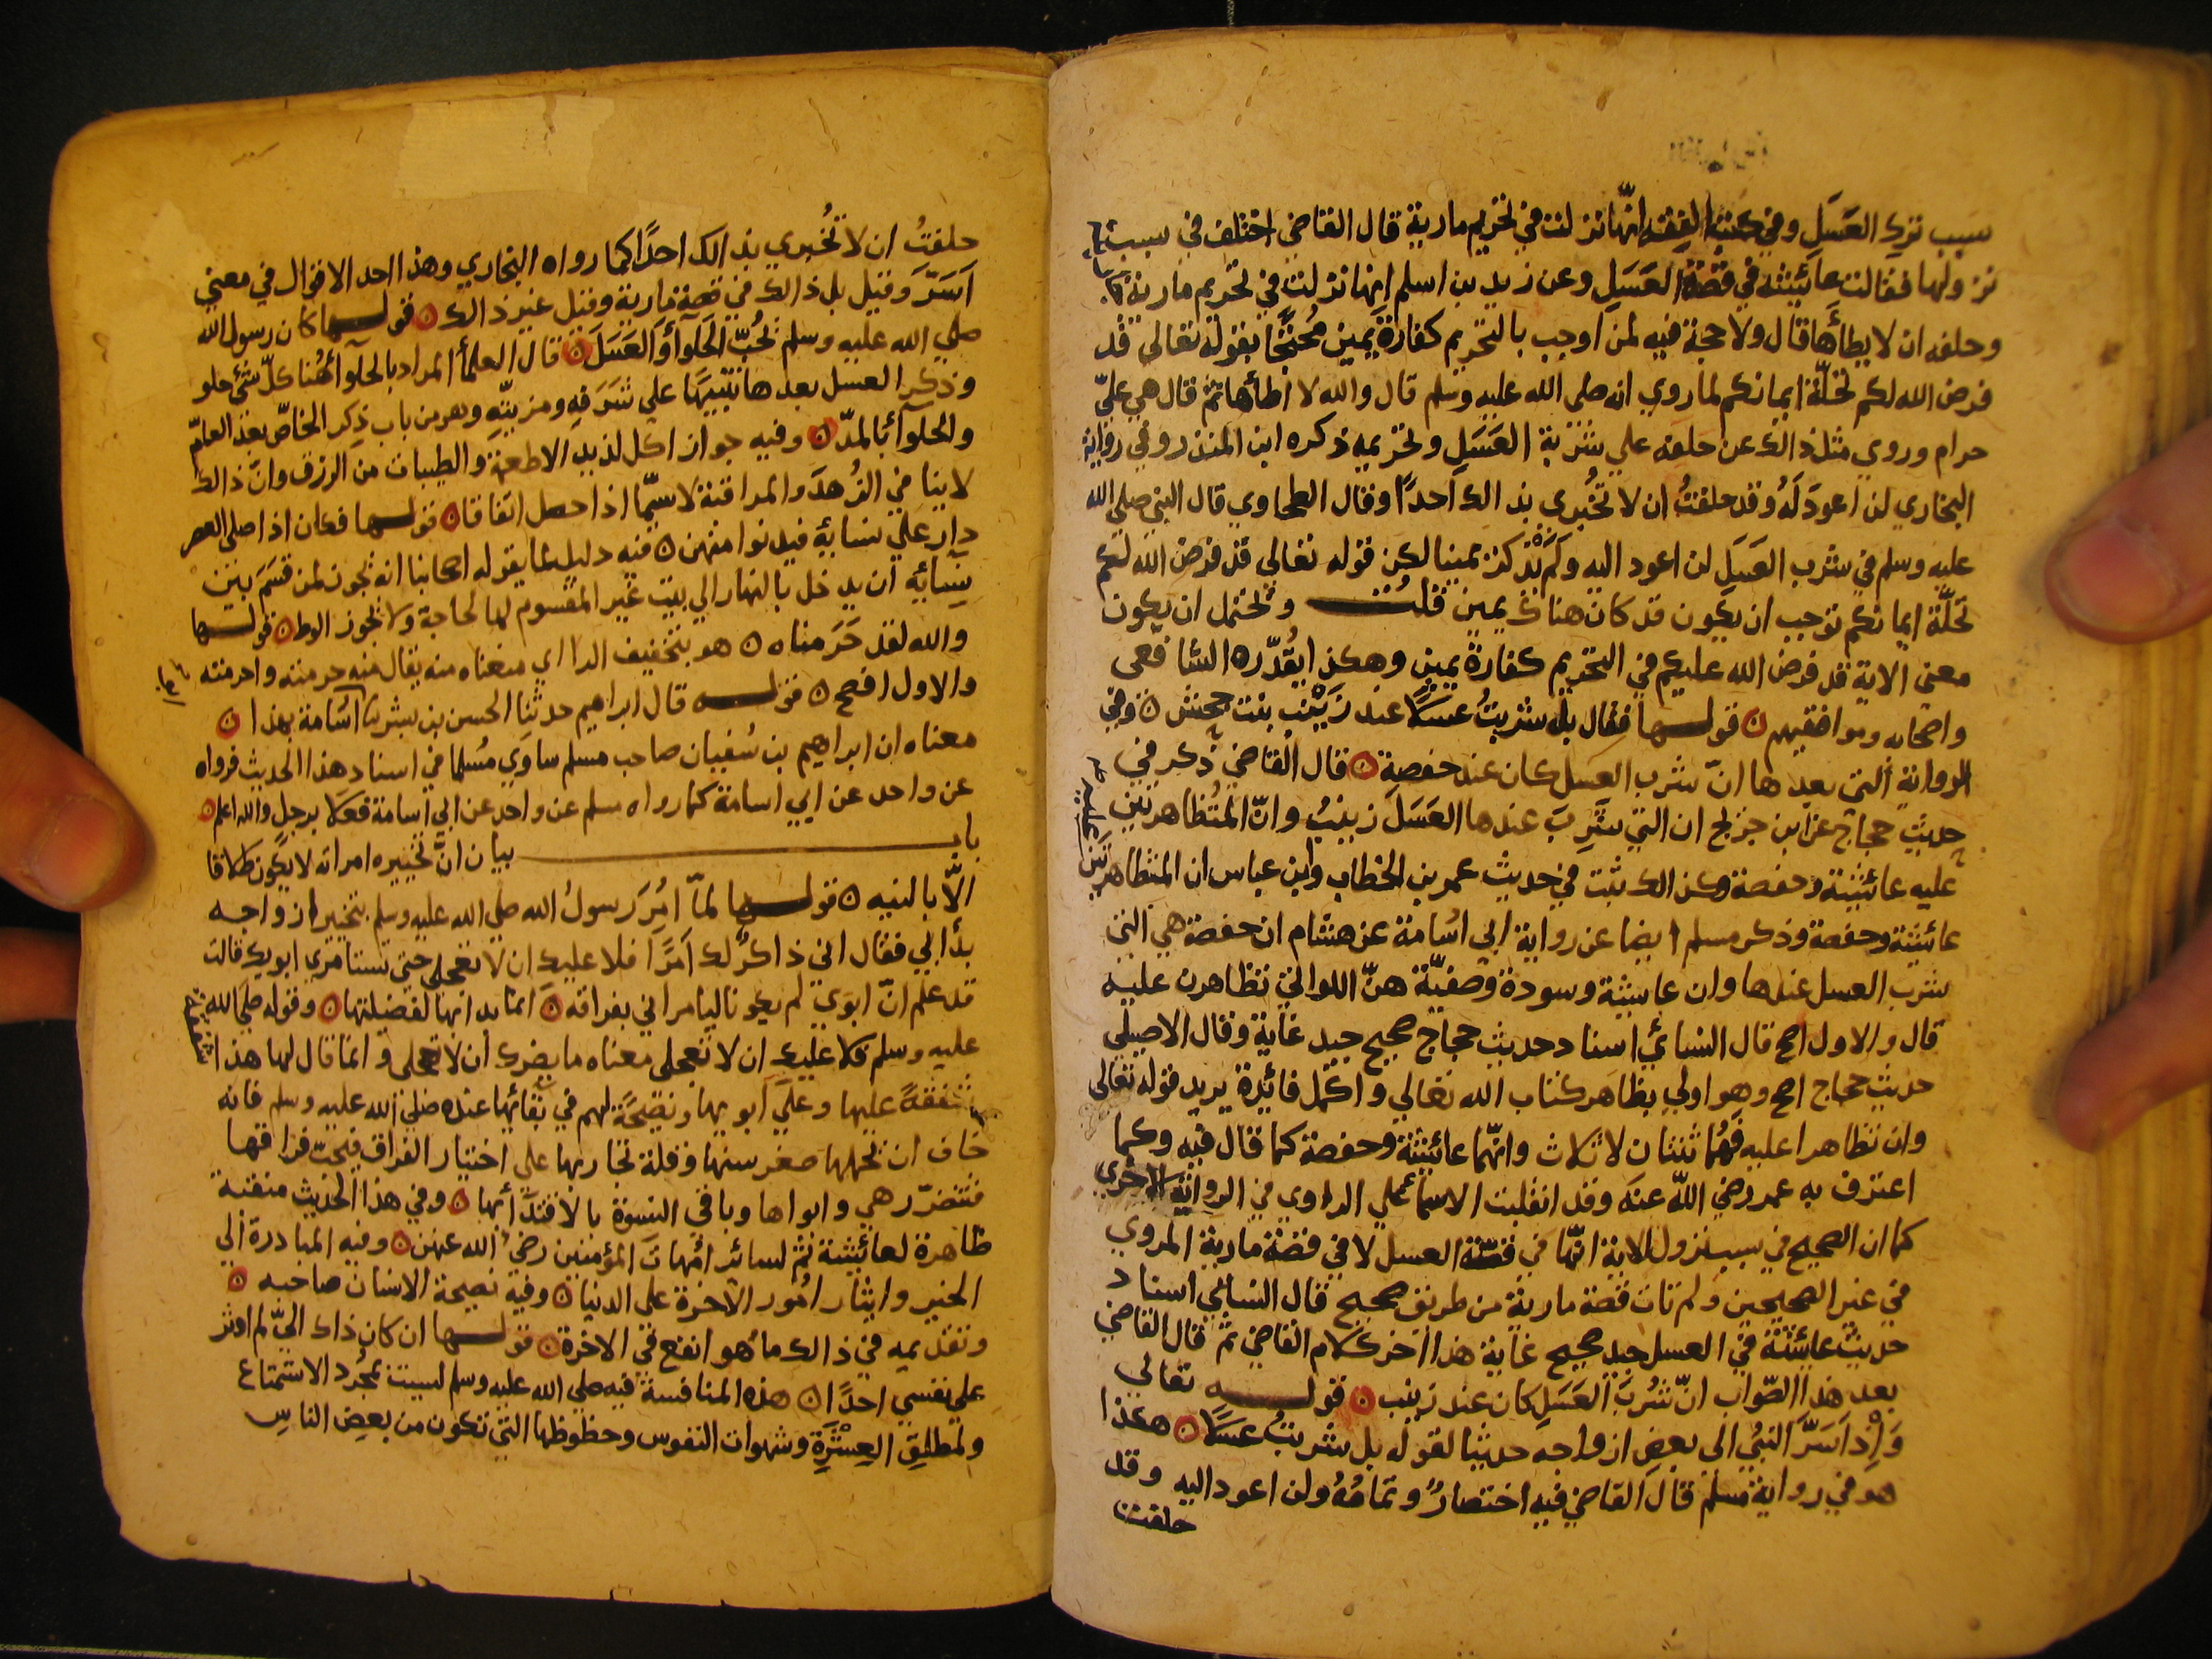 سبب ترك العَسَلِ وفي كتب الفقه انّها نزلت في تحريم مارية قال القاضي اختلف في سبب
نزولها فقالت عائيشه في قصّة العَسَلِ وعن زيد بن اسلم انها نزلت في تحريم مارية
وحلفه ان لا يطأها قال ولا حجة فيه لمن اوجب بالتحريم كفارة يمين مُحتجًّا بقوله تعالي قد
فرض الله لكم تحلّة ايمانكم لما روي انه صلى الله عليه وسلم قال والله لا اطأها ثم قال هي عليّ
حرام وروي مثل ذالك عن حلفه علي شربة العَسَلِ وتحريمه ذكره ابن المنذر وفي رواية
البخاري لن اعودَ لَهُ وقد حلفتُ ان لا تُخبري بذالك احدًا وقال الطحاوي قال النبي صلى الله
عليه وسلم في شرب العَسَلِ لن اعود اليه وَلَم يذكر يمينا لكن قوله تعالي قد فرض الله لكم
تَحلّة ايمانكم توجب ان يكون قد كان هناك يمين قلتُ ويحتمل ان يكون
معنى الاية قد فرض الله عليكم في التحريم كفارة يمين وهكذا يُقدّره الشافعى
واصحابه وموافقيهم ۝ قولها فقال بل شربتُ عسَلًا عند زيْنب بنت جحش ۝ وفي
الرواية التي بعدها انّ شرب العسل كان عند حفصة ۝ قال القاضي ذكر في
حديث حجاج عن ابن جريج ان التي شَرِبَ عندها العَسَلَ زينبُ وانّ المتظاهرتين
عليه عائيشة وحفصة وكذالك ثبت في حديث عمر بن الخطاب وابن عباس ان المتظاهرتين عليه
عائيشة وحفصة وذكر مسلم ايضا عن رواية ابي اسامة عن هشام ان حفصة هي التي
شرب العسل عندها وان عايشة وسودة وصفيّة هنّ اللواتي تظاهرن عليه
قال والاول اصح قال النسائي اسناد حديث حجاج صحيح جيد غاية وقال الاصيلى
حديث حجاج اصح وهو اولى بظاهر كتاب الله تعالي واكمل فائدة يريد قوله تعالى
وان تظاهرا عليه فهُما ثنتان لا ثلاث وانّهما عائيشة وحفصة كما قال فيه وكما
اعترف به عمر رضي اللّه عنه وقد انقلبت الاسما على الراوي في الرواية الاخري
كما ان الصحيح في سبب نزول الاية انّها في قصّة العسل لا في قصّة مارية المروي
في غير الصحيحين ولم تات قصة مارية من طريق صحيح قال النسائي اسناد
حديث عائيشة في العسل جيد صحيح غاية هذا اخر كلام القاضي ثم قال القاضي
بعد هذا الصّواب انّ شُربَ العَسَلِ كان عند زينب ۝ قوله تعالى
وَاِذ اَسَرَّ النبيُ الى بعضِ ازواجه حديثا لقوله بل شربتُ عسَلًا ۝ هكذا
هو في رواية مسلم قال القاضي فيه اختصارٌ وتمامُهُ ولن اعود اليه وقد
حلفت
حلفتُ ان لا تُخبري بذالك احدًا كما رواه البخاري وهذا احد الاقوال في معني
اَسَرَّ وقيل بل ذالك في قصة مارية وقيل غير ذالك ۝ قولها كان رسول الله
صلي الله عليه وسلم يُحبّ الحَلوآ وَالعَسَلَ ۝ قال العلمآ المراد بالحلوآ هُنا كلّ شئ حلو
وذكر العسل بعدها تنبيهًا على شَرَفِه ومزيته وهو من باب ذِكر الخاصّ بعد العامّ
والحلوآ بالمدّ ۝ وفيه جواز اكل لذيذ الاطعمة والطيبات من الرزق وانّ ذالك
لا ينا في الزُهدَ والمراقبة لا سيّما اذا حصل اتفاقا ۝ قولها فكان اذا صلى العصر
دار علي نسايه فيدنوا منهن ۝ فيه دليل لما يقوله اصحابنا انه يجوز لمن قَسَمَ بين
نسآئه ان يدخل بالنهار الي بيت غير المقسوم لها لحاجة ولا يجوز الوطء ۝ قولها
والله لقد حَرَمناه ۝ هو بتخفيف الرا اي منعناه منه يقال منه حرمته واحرمته
والاول افصح ۝ قوله قال ابراهيم حدثنا الحسن بن بشر ثنا اسامة بهذا ۝
معناه ان ابراهيم بن سُفيان صاحب مسلم ساوي مُسلما في اسناد هذا الحديث فرواه
عن واحد عن ابي اسامة كما رواه مسلم عن واحد عن ابي اسامة فعَلا برجلٍ والله اعلم ۝
باب بيان انّ تخييره امراته لا يكون طلاقا
الّا بالنيه ۝ قولها لمّا اُمِرَ رَسولُ الله صلي الله عليه وسلم بتخيير ازواجه
بدأ بي فقال اني ذاكرٌ لك اَمرًا فلا عليك ان لا تعجلى حتى تستامري ابويك قالت
قد علم انّ ابوي لم يكونا ليامراني بفراقه ۝ انما بدا بها لفضيلتها ۝ وقوله صلى الله
عليه وسلم فلا عليك ان لا تعجلى معناه ما يضرك ان لا تعجلى وانما قال لها هذا
شفقةً عليها وعلي ابويها ونصيحةً لهم في بقائها عنده صلي الله عليه وسلم فانه
خاف ان يحملها صغر سنها وقلة تجاربها على اختيار الفراق فيجب فراقها
فتتضرّر هي وابواها وباقي النسوة بالاقتدآ بها ۝ وفي هذا الحديث منقبة
ظاهرة لعائيشة ثم لسائر امُهات المؤمنين رضي الله عنهن ۝ وفيه المبادرة الي
الخير وايثار امُور الاخرة على الدنيا ۝ وفيه نصيحة الانسان صاحبه ۝
وتقديمه في ذالك ما هو انفع في الاخرة ۝ قولها ان كان ذاك اليّ لم اوثر
على نفسي احدًا ۝ هذه المنافسة فيه صلى الله عليه وسلم ليست لمجرد الاستمتاع
ولمطلقِ العِشْرَةِ وشهوات النفوس وحظوظها التي تكون من بعض الناسِ